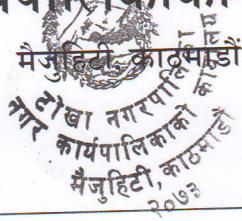 मैजुहिटी काठमाडौं
टोखा नगरपालिका
नगर कार्यपालिकाको कार्यालय
मैजुहिटी, काठमाडौं
२०७३